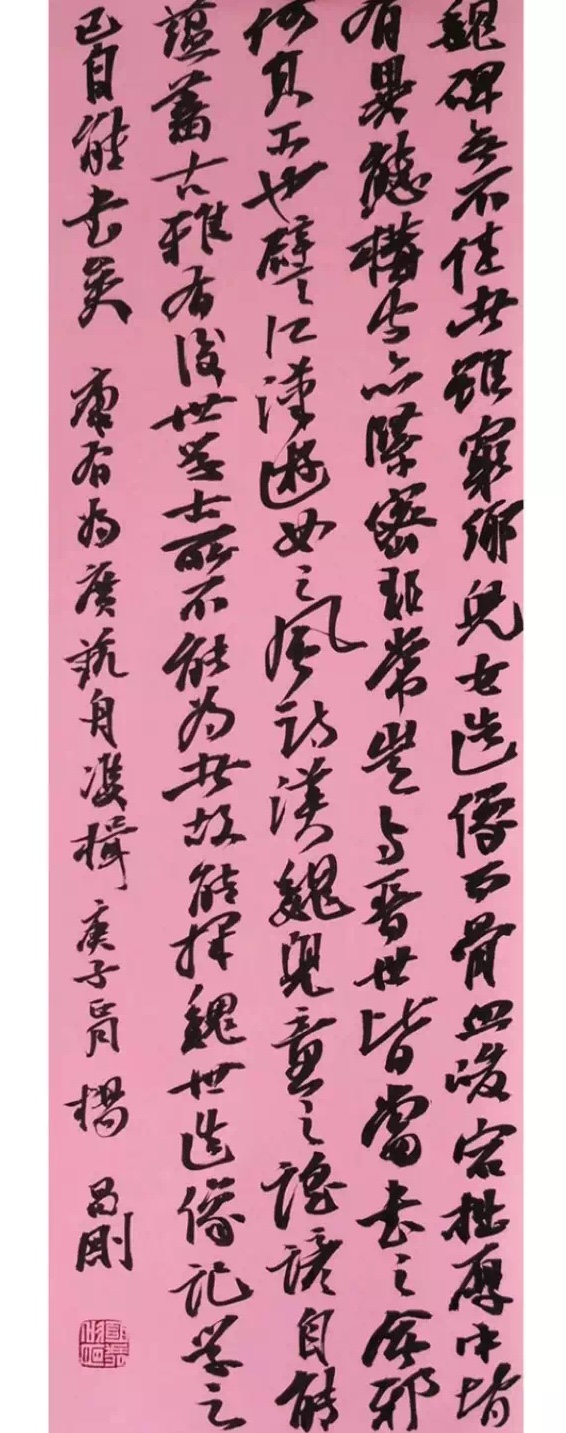 魏碑無不佳者雖窮鄉兒女造像而骨血峻宕拙厚中皆
有異態構字亦緊密非常豈與晉世皆當書之會邪
何其工也譬之江漢遊女之風詩漢魏兒童之謠諺自能
蘊蓄古雅有後世學士所不能為者故能擇魏世造像記學之
已自能書矣 康有為廣藝舟雙楫 庚子 月 楊 昌剛